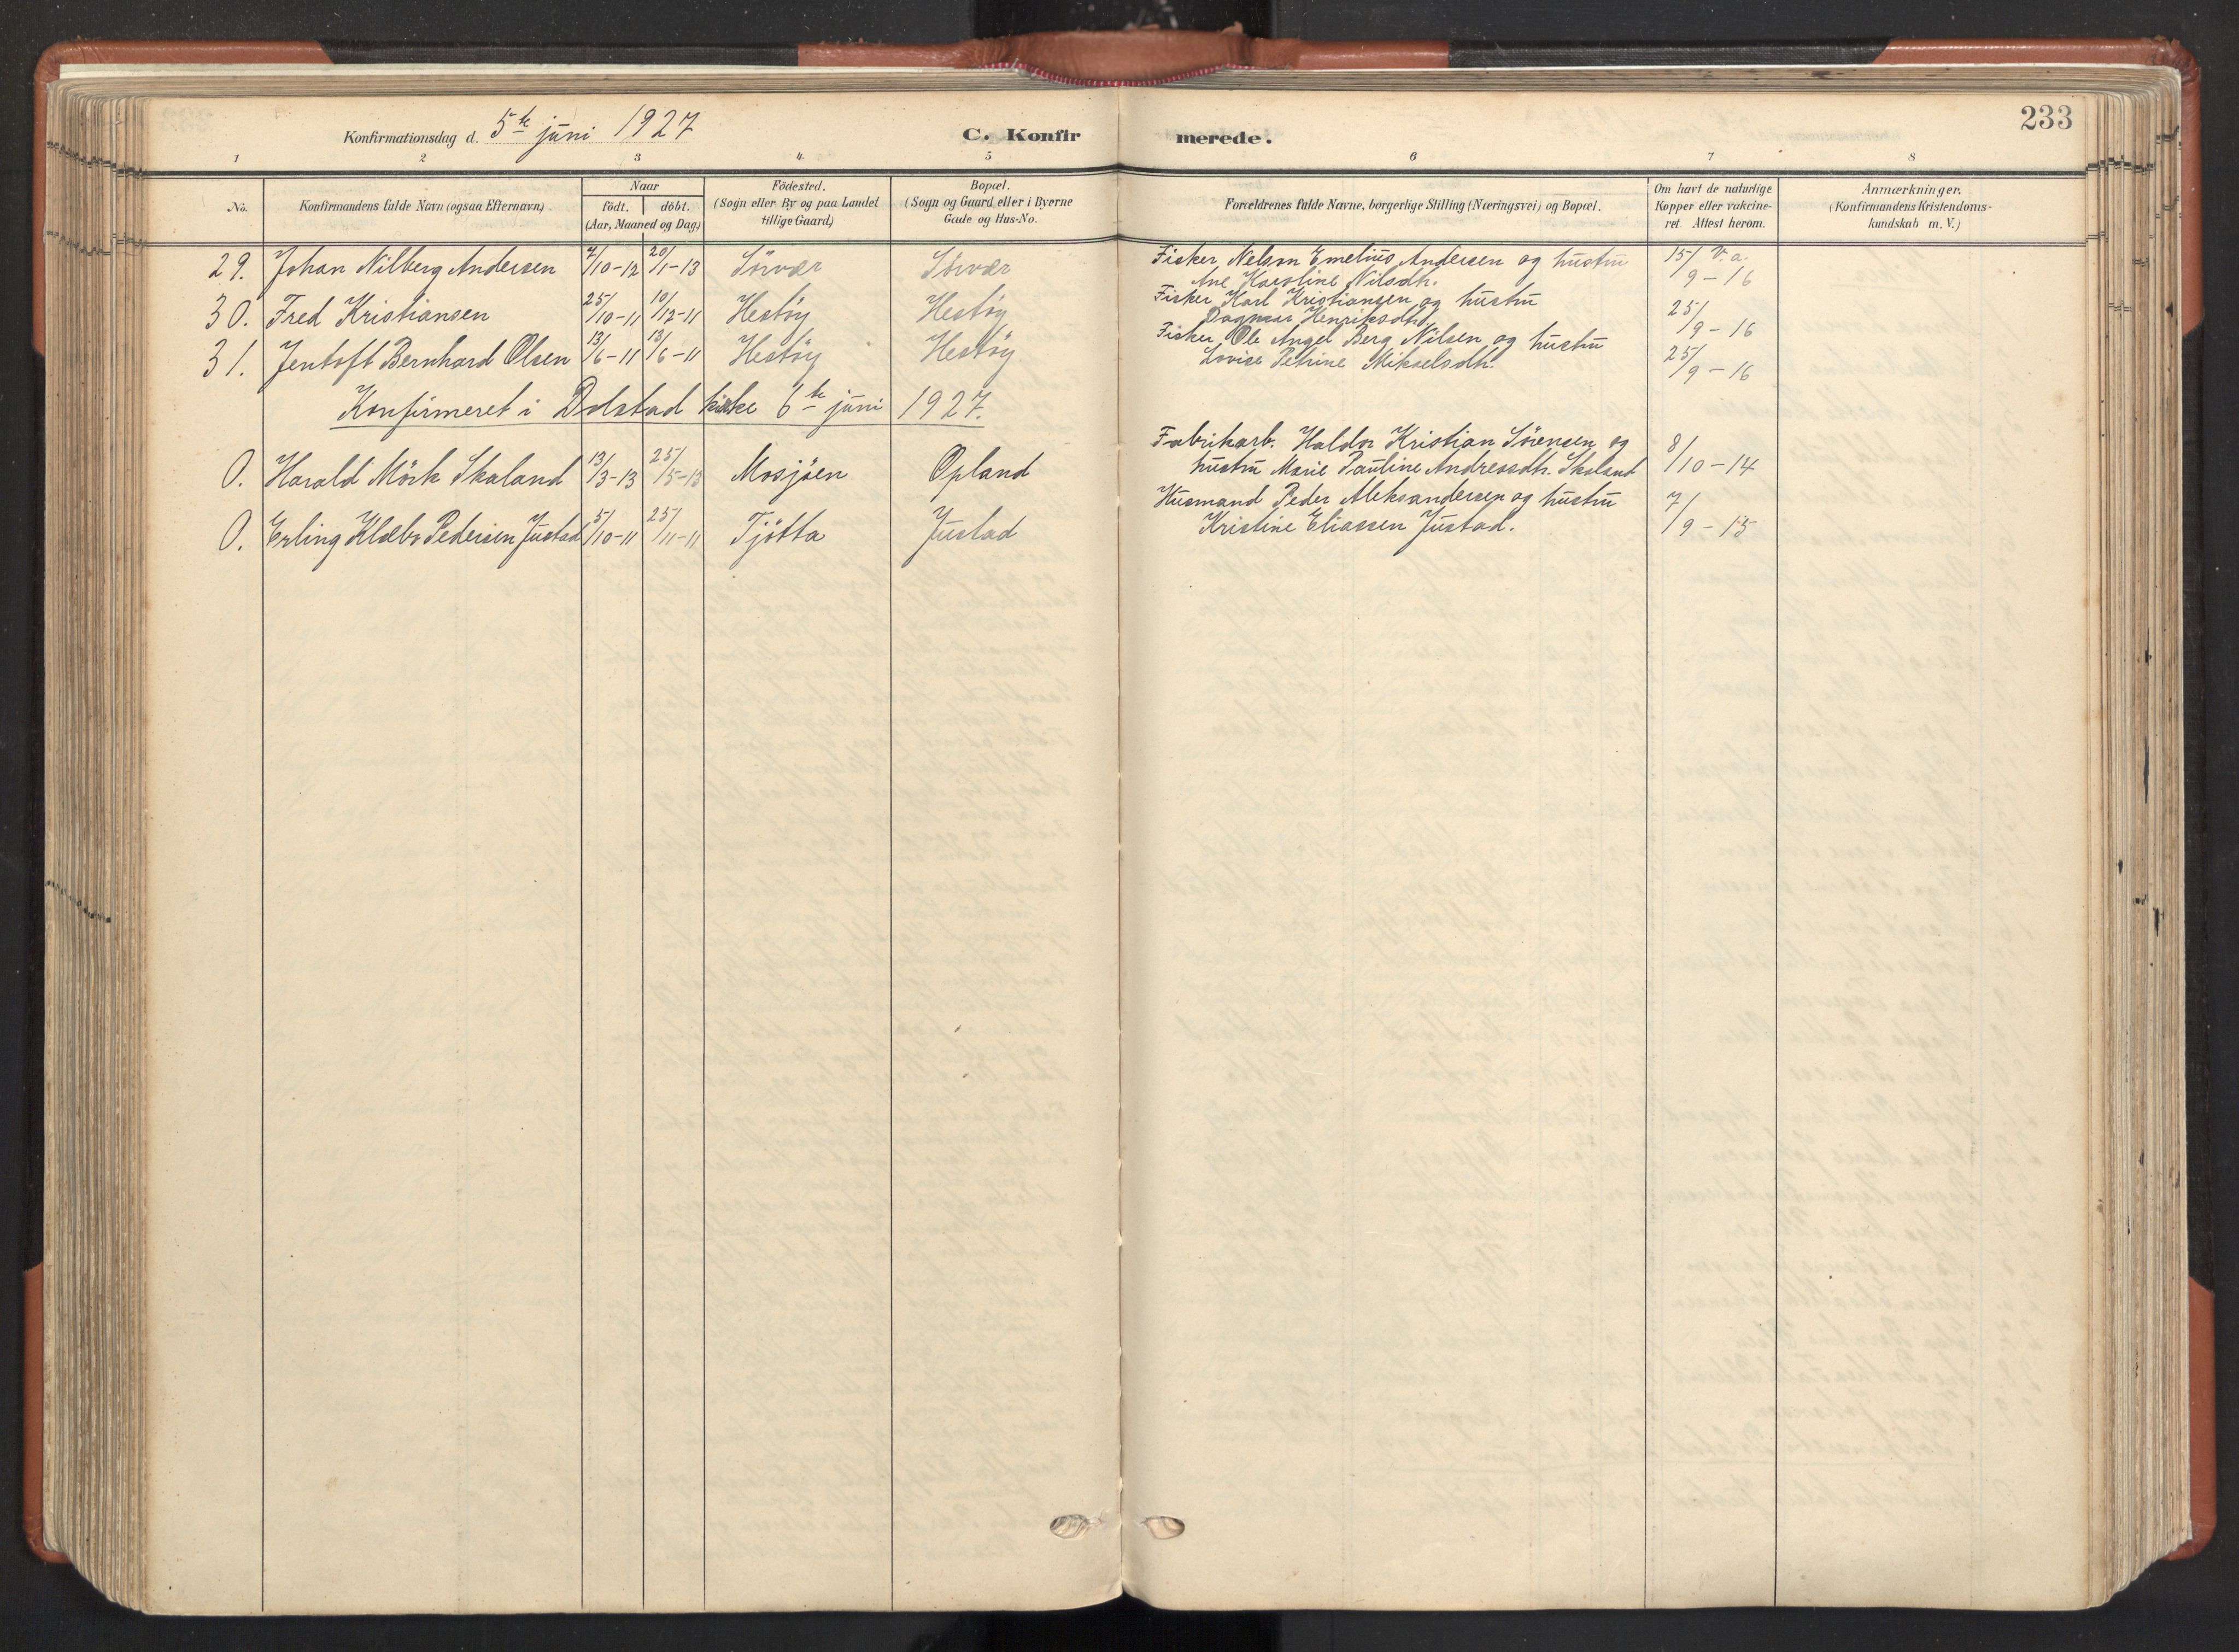 233
Konfirmationsdag d. 5te juni 1927 C. Konfirmerede.
1 2 3 4 5 6 7 8
No. Konfirmandens fulde Navn (ogsaa Efternavn). Naar födt. döbt. (Aar, Maaned og Dag) Födested. (Sogn eller By og paa Landet tillige Gaard) Bopæl. (Sogn og Gaard eller i Byerne Gade og Hus-No. Forældrenes fulde Navne, borgerlige Stilling (Næringsvei) og Bopæl. Om havt de naturlige Kopper eller vakcineret. Attest herom. Anmærkninger. (Konfirmandens Kristendomskundskab m. V.)
29. Johan Nilberg Andersen 7/10-12 20/1-13 Sörvær Sörvær Fisker Nelson Emelius Andersen og hustru 15/ v. a.
Ane Karoline Nilsdtr. 9-16
30. Fred Kristiansen 25/10-11 10/12-11 Hestöy Hestöy Fisker Karl Kristiansen og hustru 25/
Dagmar Henriksdtr. 9-16
31. Jentoft Bernhard Olsen 13/6-11 13/6-11 Hestöy Hestöy Fisker Ole Angel Berg Nilsen og hustru 25/
Lovise Petrine Mikselsdtr. 9-16
Konfirmeret i Dolstad kirke 6te juni 1927.
0. Harald Mörk Skaland 13/3-13 25/5-13 Mosjöen Opland Fabrikarb. Haldor Kristian Sörensen og 8/10-14
hustru Marie Pauline Andreasdtr. Skaland
0. Erling Klæbo Pedersen Justad 5/10-11 25/11-11 Tjötta Justad Husmand Peder Aleksandersen og hustru 7/
Kristine Eliassen Justad. 9-15